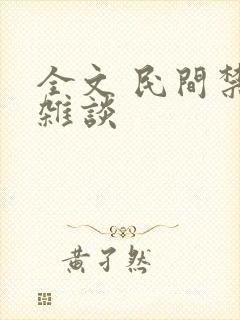 全文 民間禁
雜談
黃孑然